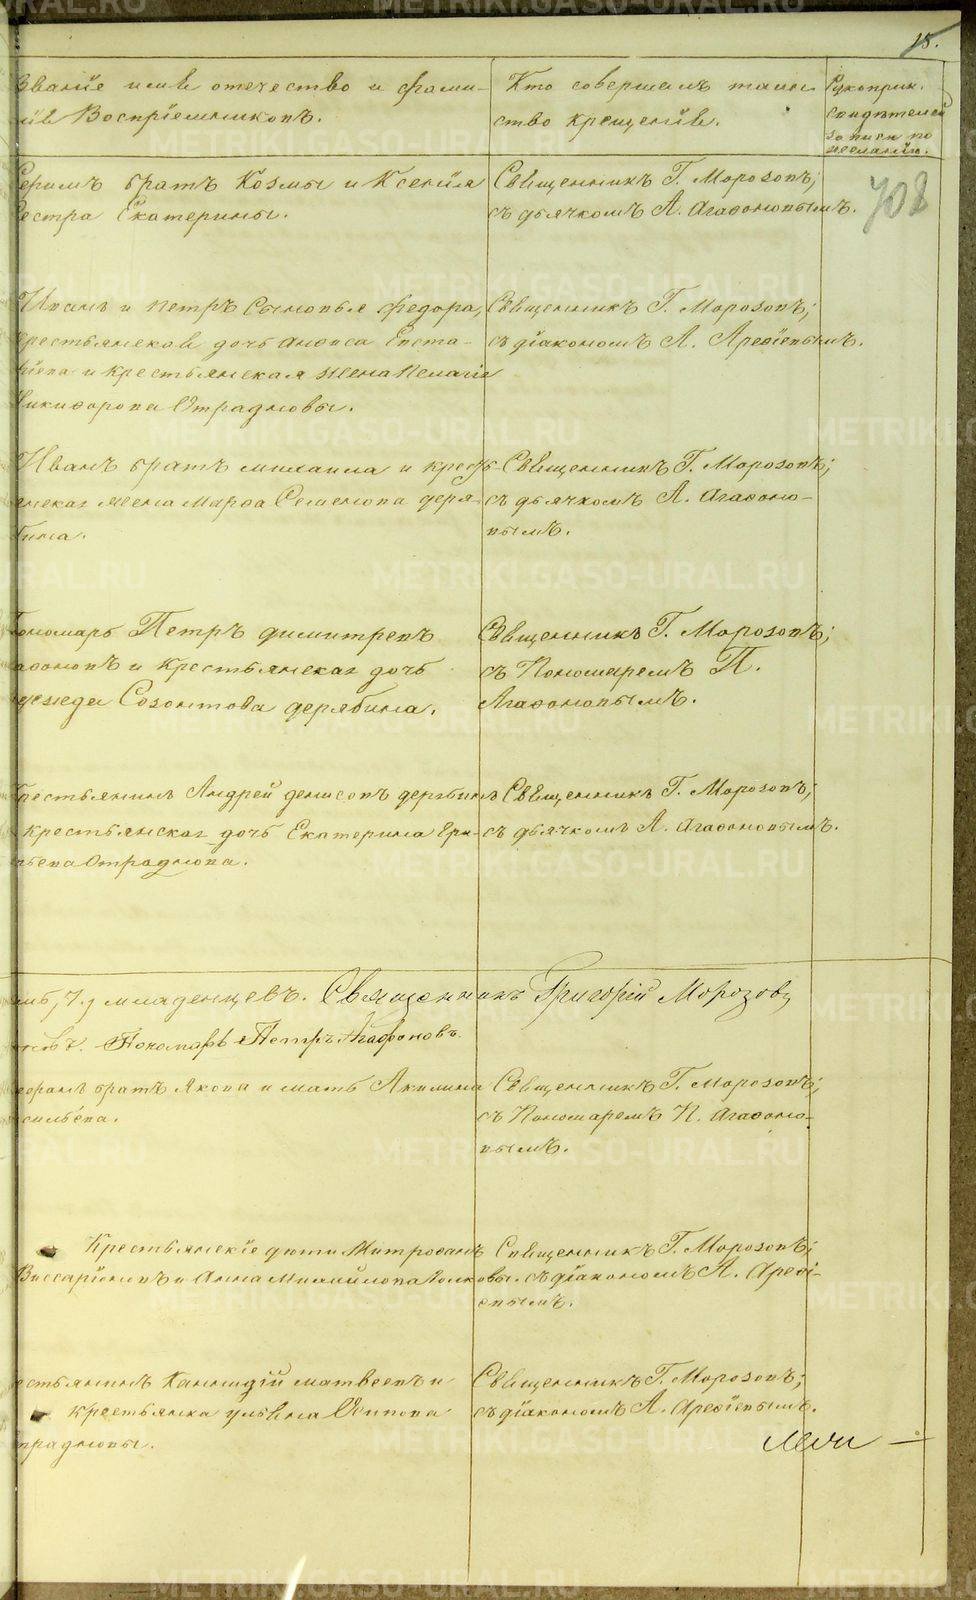 18.
Званіе имя отечество и фами-
лія Воспріемниковъ.
Кто совершалъ таин
ство крещенія.
Рукоприк.
свидѣтелей
записи по
желанію.
708
братъ Козмы и Ксенія
сестра Екатерины.
Священникъ Г. Морозовъ;
съ дьячкомъ А. Агафоновымъ.
Иванъ и Петръ Сыновья Федора,
крестьянская дочь Анфиса Евста-
фіева и крестьянская жена Пелагія
Никифорова Отрадновы.
Священникъ Г. Морозовъ;
съ діакономъ А. Арефіевымъ.
Иванъ братъ михаила и крестья-
нская жена Марфа Семенова деря-
бина.
Священникъ Г. Морозовъ;
съ дьячкомъ А. Агафоно-
вымъ.
Пономарь Петръ димитріевъ
Агафоновъ и крестьянская дочь
Созонтова дерябина.
Священникъ Г. Морозовъ;
съ Пономаремъ П.
Агафоновымъ.
Крестьянинъ Андрей денисовъ дерябинъ
крестьянская дочь Екатерина
Отраднова.
Священникъ Г. Морозовъ;
съ дьячкомъ А. Агафоновымъ.
7. младенцевъ. Священникъ Григорій Морозовъ
Пономарь Петръ Агафоновъ
братъ Якова и мать Акилина
Васильева.
Священникъ Г. Морозовъ;
съ Пономаремъ П. Агафоно-
вымъ.
Крестьянскіе дѣти Митрофанъ
Виссаріоновъ и Анна Михайлова Волковы.
Священникъ Г. Морозовъ;
съ діакономъ А. Арефі-
евымъ.
крестьянинъ матвеевъ и
крестьянка Ульяна Осипова
Отрадновы.
Священникъ Г. Морозовъ;
съ діакономъ А. Арефіевымъ.
METRIKI.GASO-URAL.RU